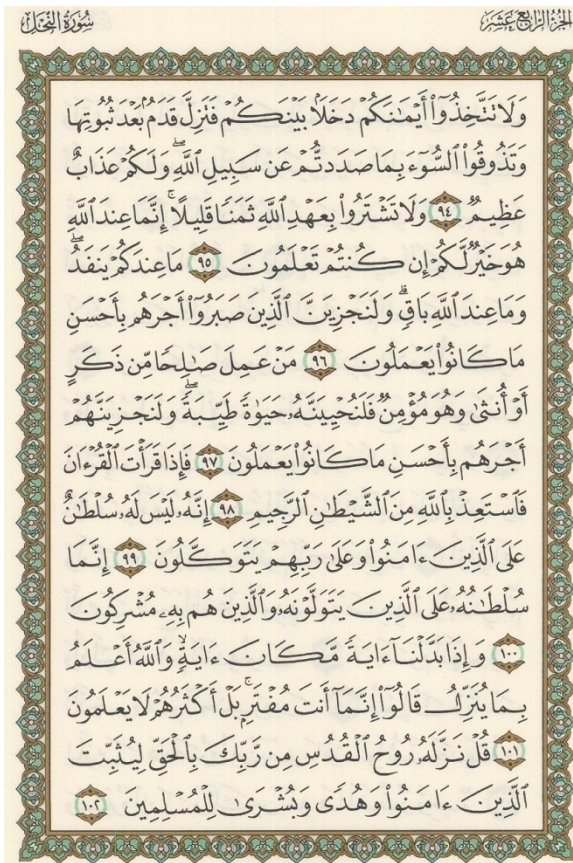 الجزء الرابع عشر
سورة النحل
وَلَا تَتَّخِذُوٓا۟ أَيْمَـٰنَكُمْ دَخَلًۢا بَيْنَكُمْ فَتَزِلَّ قَدَمٌۢ بَعْدَ ثُبُوتِهَا
وَتَذُوقُوا۟ ٱلسُّوٓءَ بِمَا صَدَدتُّمْ عَن سَبِيلِ ٱللَّهِ ۖ وَلَكُمْ عَذَابٌ
عَظِيمٌ ٩٤ وَلَا تَشْتَرُوا۟ بِعَهْدِ ٱللَّهِ ثَمَنًا قَلِيلًا ۚ إِنَّمَا عِندَ ٱللَّهِ
هُوَ خَيْرٌ لَّكُمْ إِن كُنتُمْ تَعْلَمُونَ ٩٥ مَا عِندَكُمْ يَنفَدُ ۖ
وَمَا عِندَ ٱللَّهِ بَاقٍ ۗ وَلَنَجْزِيَنَّ ٱلَّذِينَ صَبَرُوٓا۟ أَجْرَهُم بِأَحْسَنِ
مَا كَانُوا۟ يَعْمَلُونَ ٩٦ مَنْ عَمِلَ صَـٰلِحًا مِّن ذَكَرٍ
أَوْ أُنثَىٰ وَهُوَ مُؤْمِنٌ فَلَنُحْيِيَنَّهُۥ حَيَوٰةً طَيِّبَةً ۖ وَلَنَجْزِيَنَّهُمْ
أَجْرَهُم بِأَحْسَنِ مَا كَانُوا۟ يَعْمَلُونَ ٩٧ فَإِذَا قَرَأْتَ ٱلْقُرْءَانَ
فَٱسْتَعِذْ بِٱللَّهِ مِنَ ٱلشَّيْطَـٰنِ ٱلرَّجِيمِ ٩٨ إِنَّهُۥ لَيْسَ لَهُۥ سُلْطَـٰنٌ
عَلَى ٱلَّذِينَ ءَامَنُوا۟ وَعَلَىٰ رَبِّهِمْ يَتَوَكَّلُونَ ٩٩ إِنَّمَا
سُلْطَـٰنُهُۥ عَلَى ٱلَّذِينَ يَتَوَلَّوْنَهُۥ وَٱلَّذِينَ هُم بِهِۦ مُشْرِكُونَ
١٠٠ وَإِذَا بَدَّلْنَآ ءَايَةً مَّكَانَ ءَايَةٍ ۙ وَٱللَّهُ أَعْلَمُ
بِمَا يُنَزِّلُ قَالُوٓا۟ إِنَّمَآ أَنتَ مُفْتَرٍۭ ۚ بَلْ أَكْثَرُهُمْ لَا يَعْلَمُونَ
١٠١ قُلْ نَزَّلَهُۥ رُوحُ ٱلْقُدُسِ مِن رَّبِّكَ بِٱلْحَقِّ لِيُثَبِّتَ
ٱلَّذِينَ ءَامَنُوا۟ وَهُدًى وَبُشْرَىٰ لِلْمُسْلِمِينَ ١٠٢